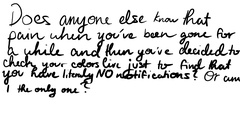 Does anyone else know that
pain when you've been gone for
a while and then you've decided to
check your colors live just to find that
you have literally NO notifications? Or am
I the only one?